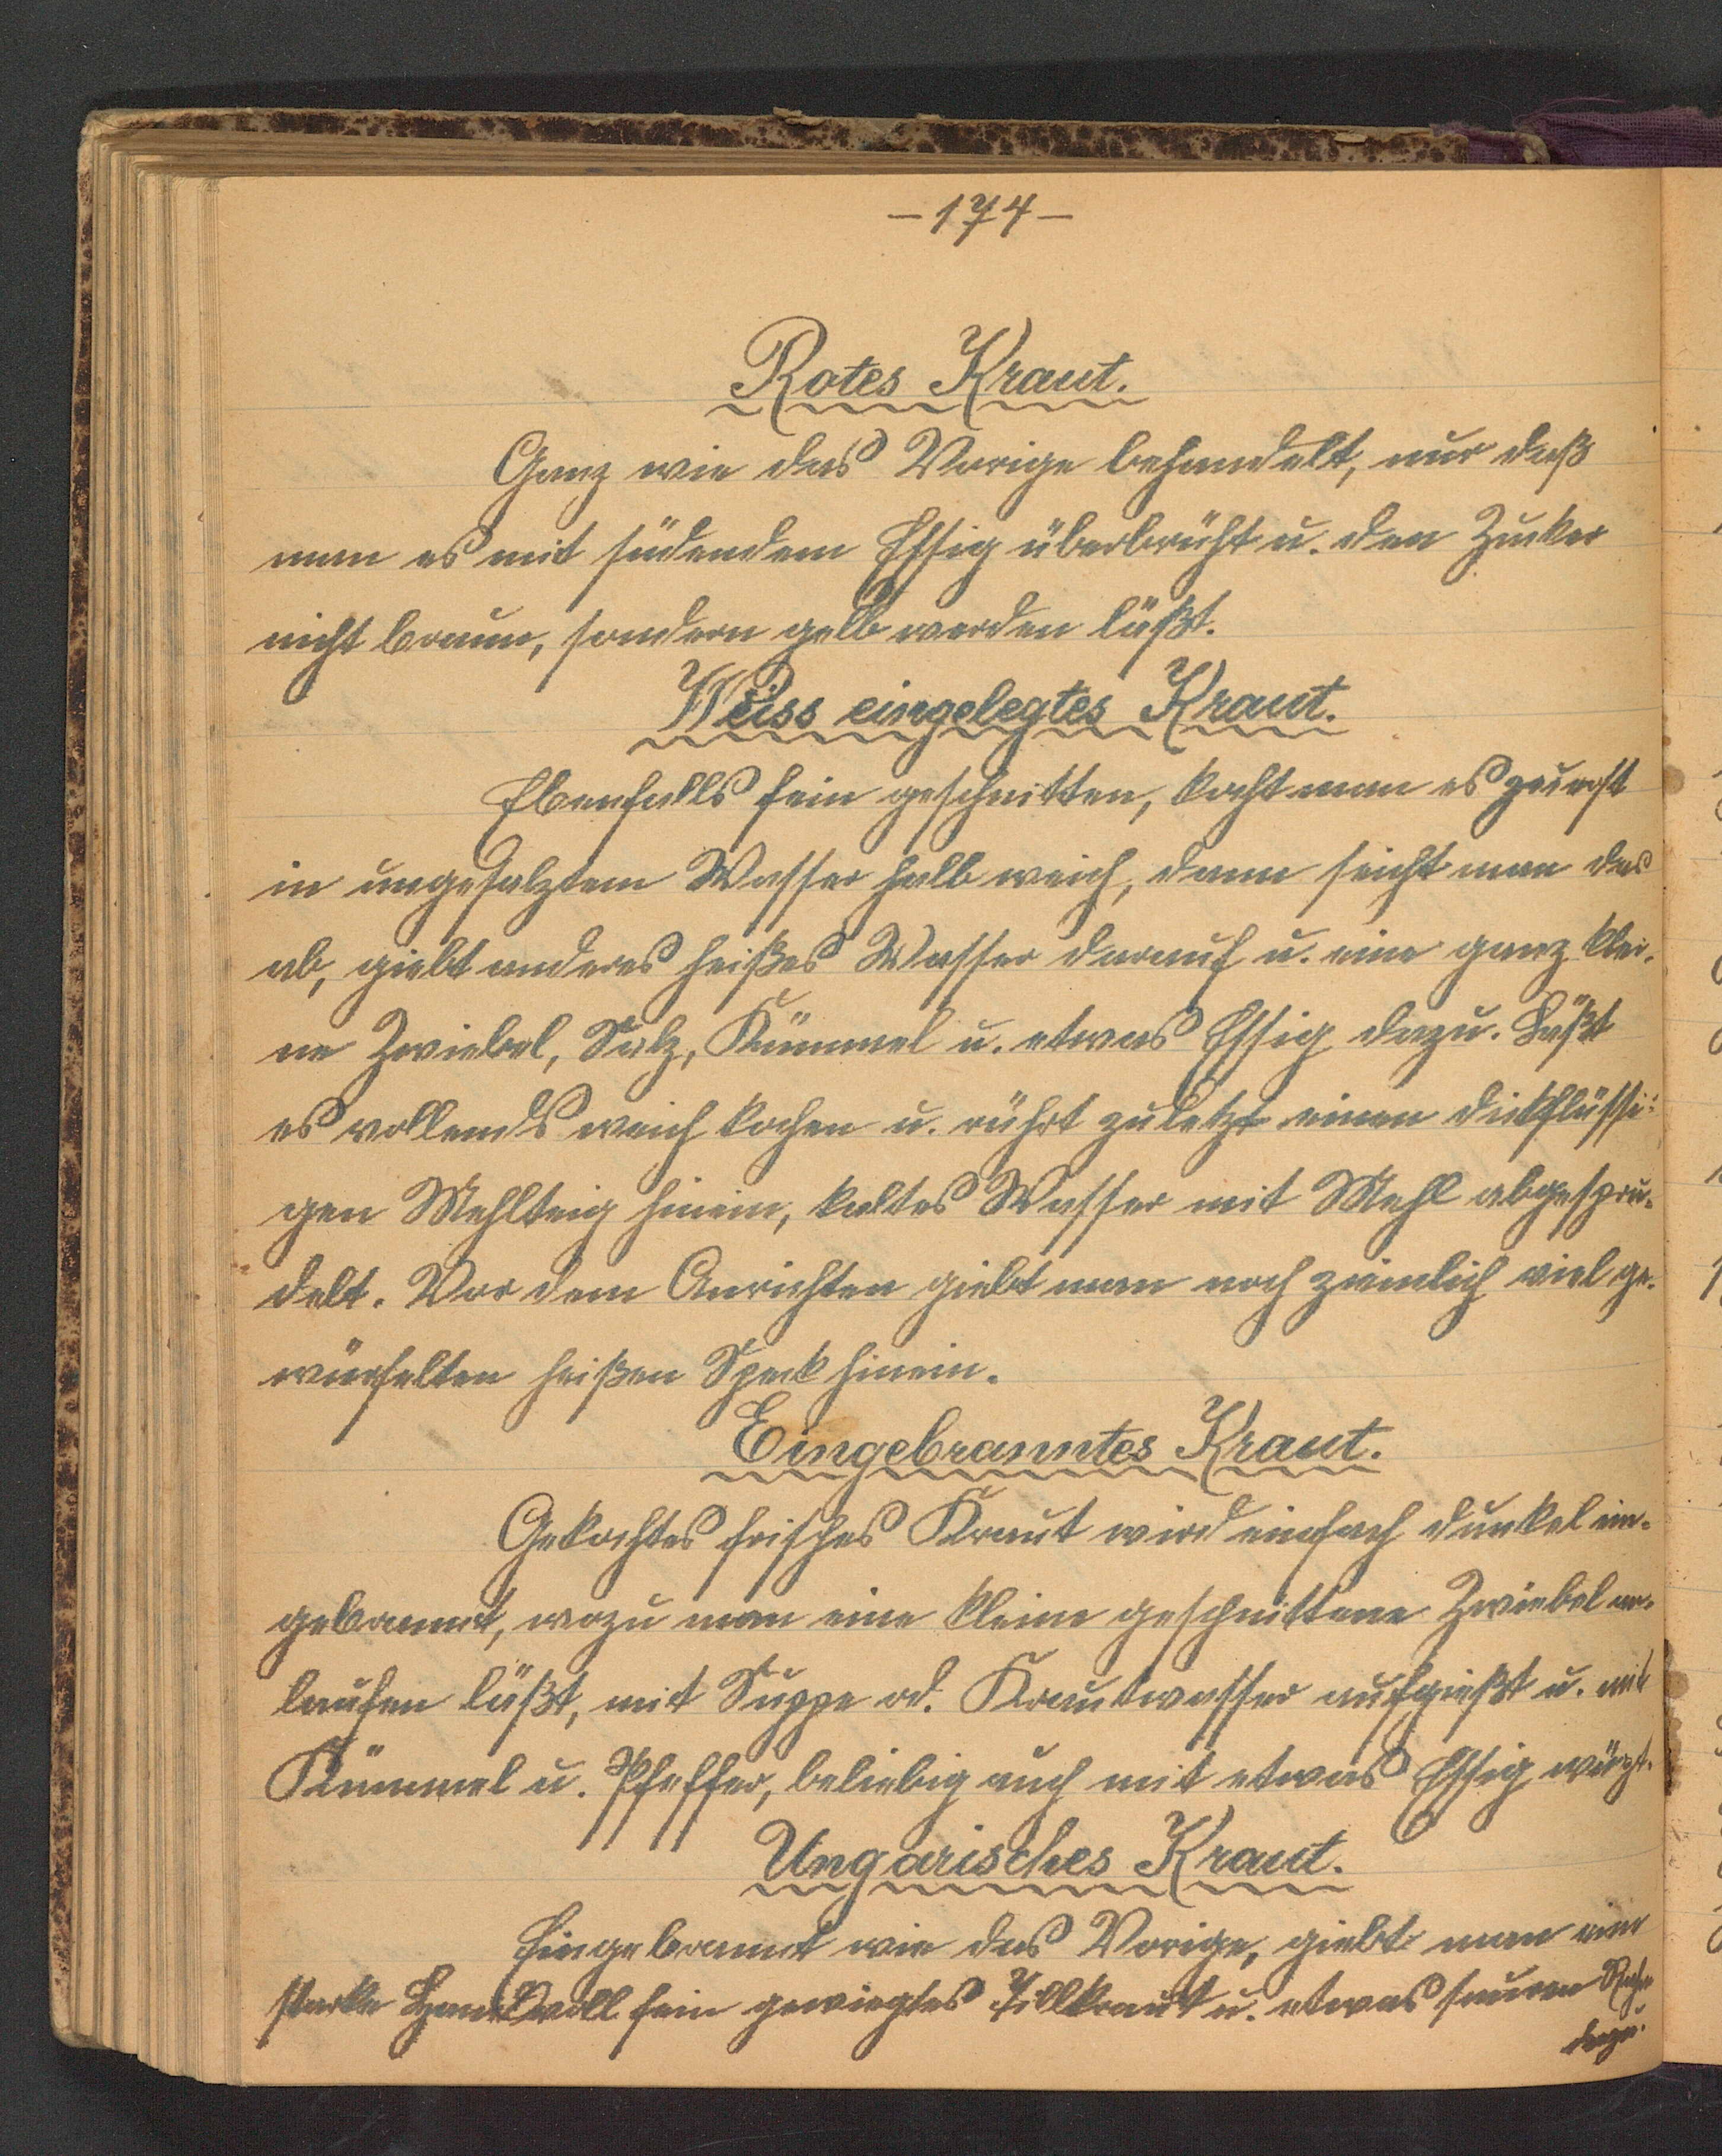 — 174 —
Rotes Kraut.
Ganz wie das Vorige behandelt, nur daß
man es mit südendem Essig überbrüht u. den Zucker
nicht braun, sondern gelb werden läßt.
Weiss eingelegtes Kraut.
Ebenfalls fein geschnitten, kocht man es zuerst
in ungesalztem Wasser halb weich, dann seicht man das
ab, giebt anderes heißes Wasser darauf u. eine ganz klei-
ne Zwiebel, Salz, Kümmel u. etwas Essig dazu. Läßt
es vollends weich kochen u. rührt zuletzt einen dickflüssi-
gen Mehlteig hinein, kaltes Wasser mit Mehl abgespru-
delt. Vor dem Anrichten giebt man noch ziemlich viel ge-
würfelten heißen Speck hinein.
Eingebranntes Kraut.
Gekochtes frisches Kraut wird einfach dunkel ein-
gebrannt, wozu man eine kleine geschnittene Zwiebel an-
laufen läßt, mit Suppe od. Krautwasser aufgießt u. mit
Kümmel u. Pfeffer, beliebig auch mit etwas Essig würzt.
Ungarisches Kraut.
Eingebrannt wie das Vorige, giebt man eine
starke Hand voll fein gewiegtes Dillkraut u. etwas sauren Rahm
dazu.